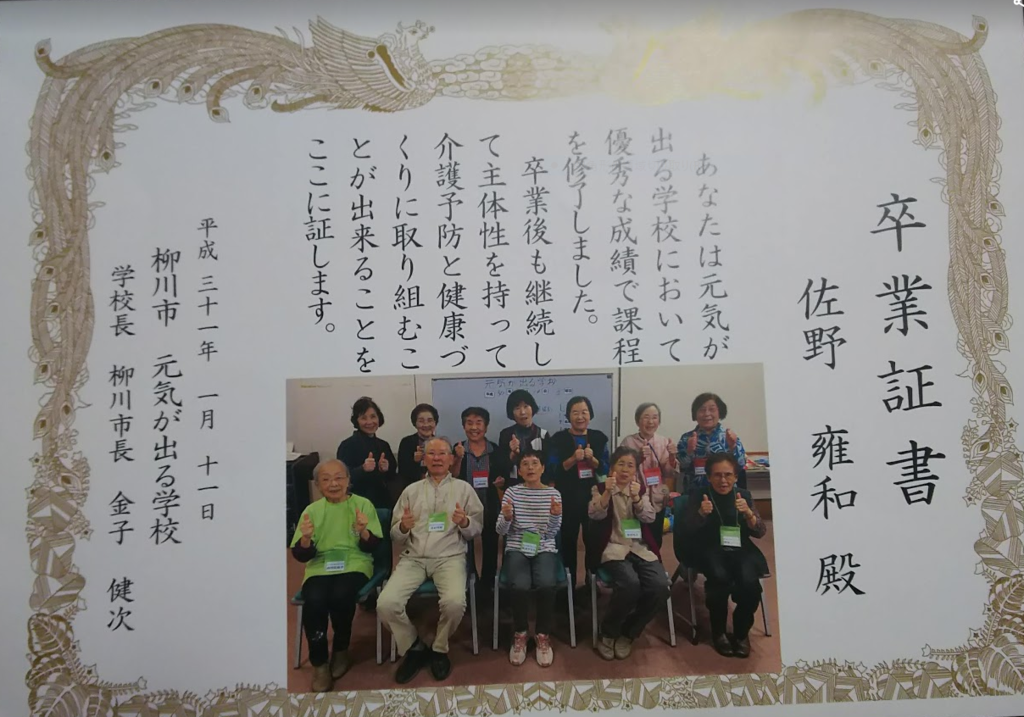 卒業証書
佐野 雍和 殿
あなたは元気が
出る学校において
優秀な成績で課程
を修了しました。
卒業後も継続し
て主体性を持って
介護予防と健康づ
くりに取り組むこ
とが出来ることを
ここに証します。
平成三十一年 一月 十一日
柳川市 元気が出る学校
学校長 柳川市長 金子 健次
元気が出る学校